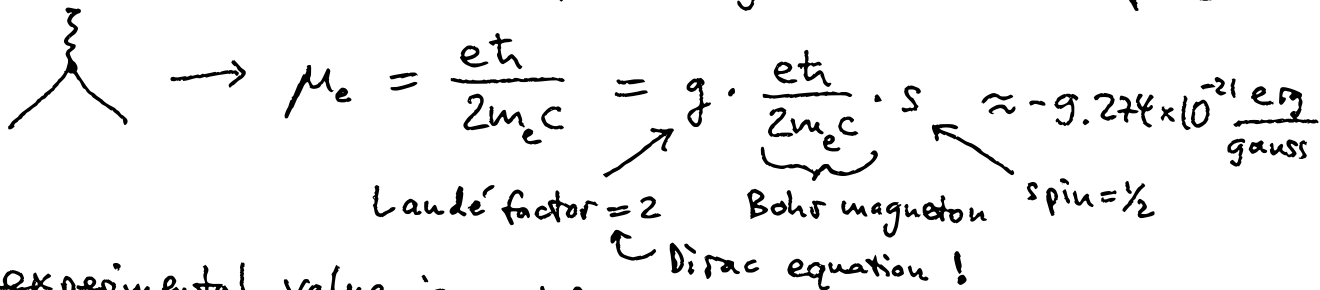 → μₑ = eħ / 2mₑc = g · eħ / 2mₑc · s ≈ -9.274×10⁻²¹ erg / gauss
Landé factor = 2 Bohr magneton spin = ½
Dirac equation !
experimental value is